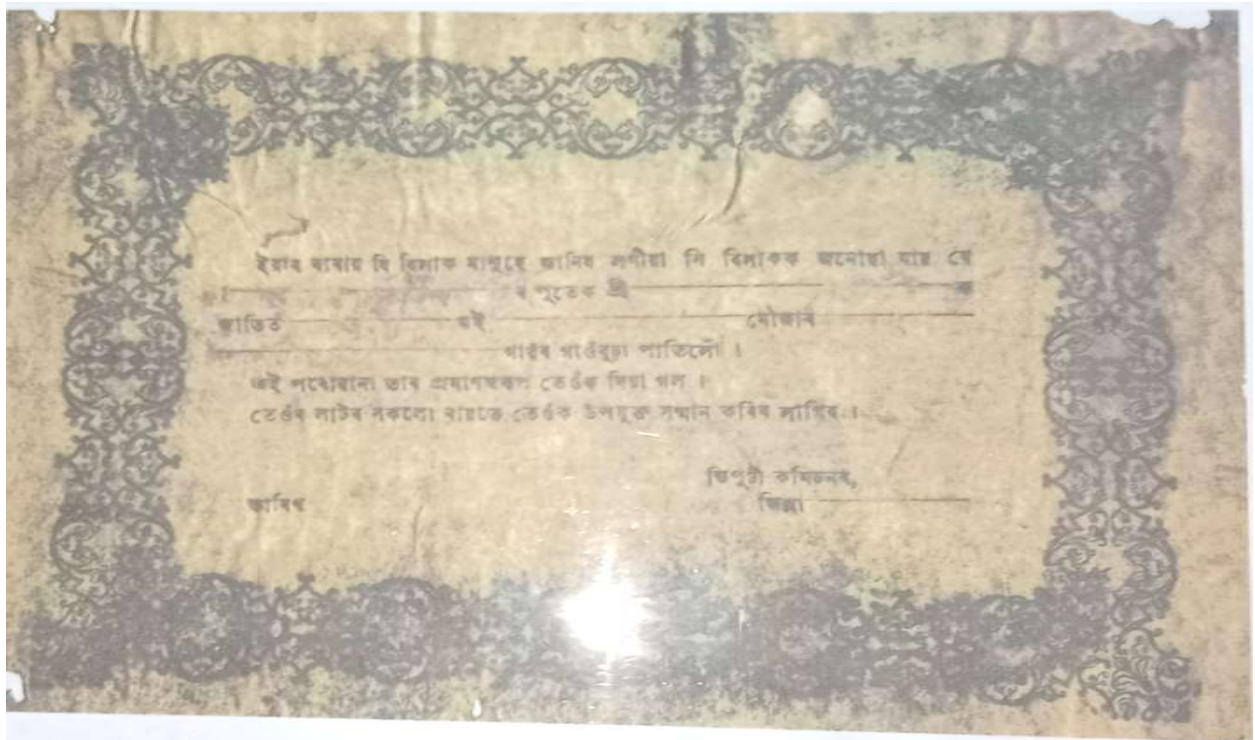 ইয়াৰ দ্বাৰায় যি বিলাক মানুহে জানিব লগীয়া সি বিলাকক জনোৱা যায় যে
ৰ পুতেক শ্ৰী ক
জাতিত বই মৌজাৰ
গাৱঁৰ গাওঁবুঢ়া পাতিলোঁ ।
এই পৰোৱানা তাৰ প্ৰমাণস্বৰূপ তেওঁক দিয়া গল ।
তেওঁৰ লাটৰ সকলো ৰায়তে তেওঁক উপযুক্ত সন্মান কৰিব লাগিব ।
ডিপুটী কমিচনৰ,
তাৰিখ জিল্লা